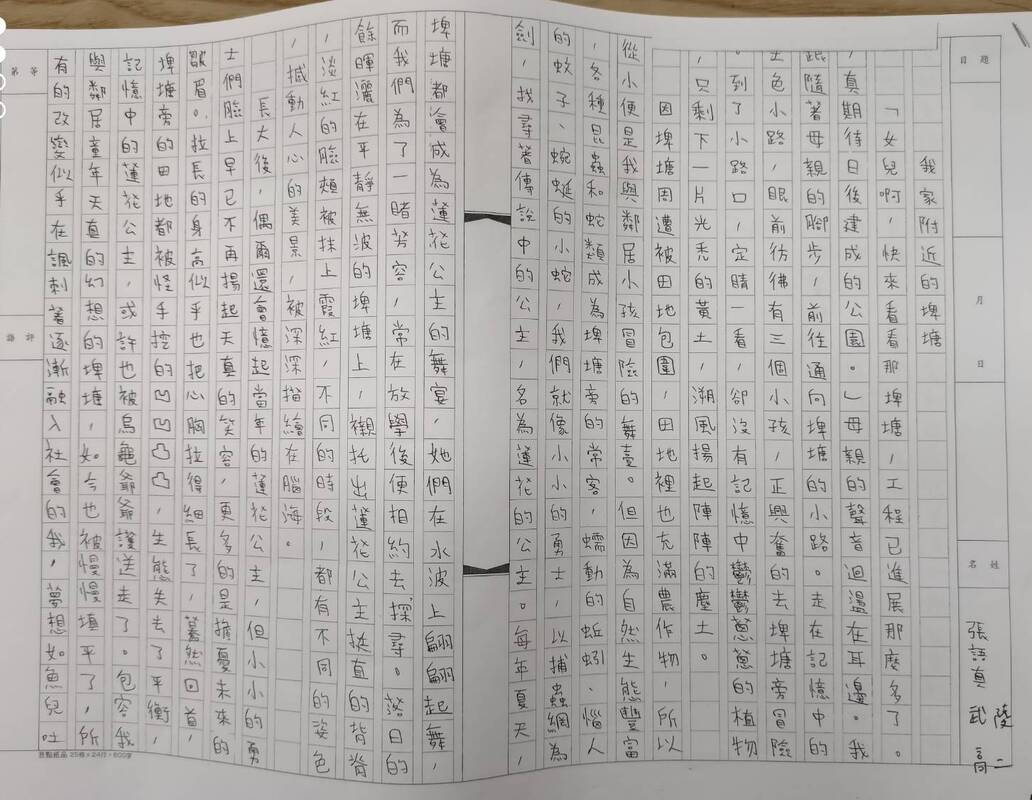 題目
月 日
姓名
張語真 武陵 高二
我家附近的埤塘
「女兒啊，快來看看那埤塘，工程已進展那麼多了。
真期待日後建成的公園。」母親的聲音迴盪在耳邊。我
跟隨著母親的腳步，前往通向埤塘的小路。走在記憶中的
土色小路，眼前彷彿有三個小孩，正興奮的去埤塘旁冒險
。到了小路口，定睛一看，卻沒有記憶中鬱鬱蔥蔥的植物
，只剩下一片光禿的黃土，溯風揚起陣陣的塵土。
因埤塘周遭被田地包圍，田地裡也充滿農作物，所以
從小便是我與鄰居小孩冒險的舞臺。但因為自然生態豐富
，各種昆蟲和蛇類成為埤塘旁的常客，蠕動的蚯蚓、惱人
的蚊子、蜿蜒的小蛇，我們就像小小的勇士，以捕蟲網為
劍，找尋著傳說中的公主，名為蓮花的公主。每年夏天，
埤塘都會成為蓮花公主的舞宴，她們在水波上翩翩起舞，
而我們為了一睹芳容，常在放學後便相約去探尋。落日的
餘暉灑在平靜無波的埤塘上，襯托出蓮花公主挺直的背脊
，淡紅的臉頰被抹上霞紅，不同的時段，都有不同的姿色
，撼動人心的美景，被深深描繪在腦海。
長大後，偶爾還會憶起當年的蓮花公主，但小小的勇
士們臉上早已不再揚起天真的笑容，更多的是擔憂未來的
皺眉。拉長的身高似乎也把心胸拉得細長了，驀然回首，
埤塘旁的田地都被怪手挖的凹凹凸凸，生態失去了平衡，
記憶中的蓮花公主，或許也烏龜爺爺護送走了。包容我
與鄰居童年天真的幻想的埤塘，如今也被慢慢填平了，所
有的改變似乎在諷刺著逐漸融入社會的我，夢想如魚兒吐
等第
評語
25格×24行=600字